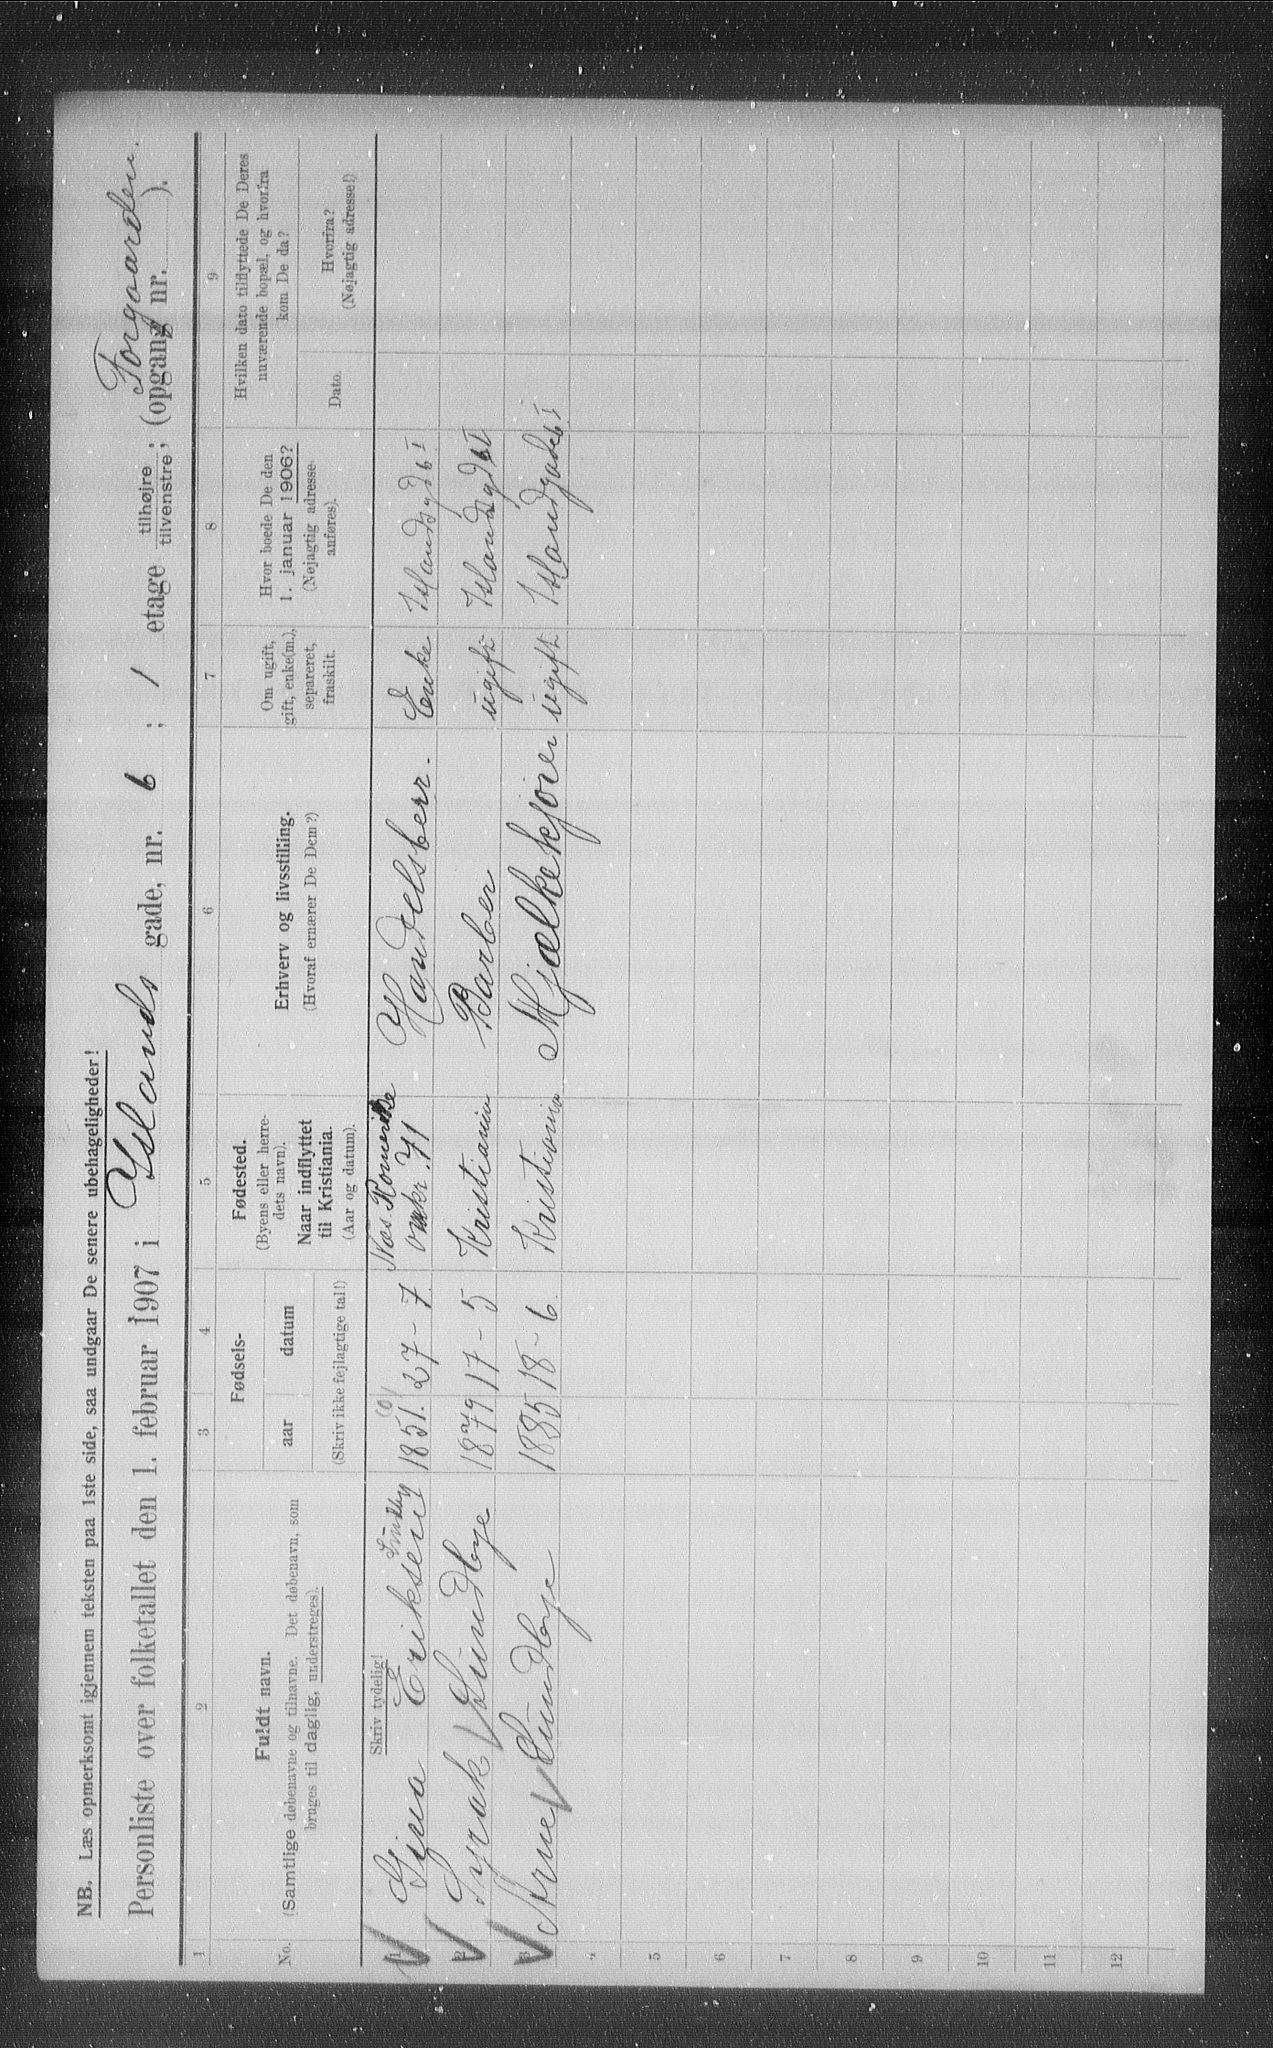 NB. Læs opmerksomt igjennem teksten paa 1ste side, saa undgaar De senere ubehageligheder!
Forgaarden.
Personliste over folketallet den 1. februar 1907 i Yslands gade, nr. 6 ; 1 etage tilhøjre ; tilvenstre ; (opgang nr. ).
1 2 3 4 5 6 7 8 9
No.
Fuldt navn.
(Samtlige døbenavne og tilnavne. Det døbenavn, som
bruges til daglig, understreges).
Skriv tydelig!
Fødsels-
aar datum
(Skriv ikke fejlagtige tal!)
Fødested.
(Byens eller herre-
dets navn).
Naar indflyttet
til Kristiania.
(Aar og datum).
Erhverv og livsstilling.
(Hvoraf ernærer De Dem?)
Om ugift,
gift, enke(m.),
separeret,
fraskilt.
Hvor boede De den
1. januar 1906?
(Nøjagtig adresse
anføres).
Hvilken dato tilflyttede De Deres
nuværende bopæl, og hvorfra
kom De da?
Dato.
Hvorfra?
(Nøjagtig adresse!)
1 Gina Eriksen 1851. 27-7. Næs. Romerike omkr. 71 Handelsberr. Enke Islandsgd 6 I
2 Syrak Sundbye 1879 17-5 Kristiania Barber ugift Islandsgd 6 I
3 Arne Sundbye 1885 18-6. Kristiania Mjælkekjører ugift Islandgade 6 I
4
5
6
7
8
9
10
11
12